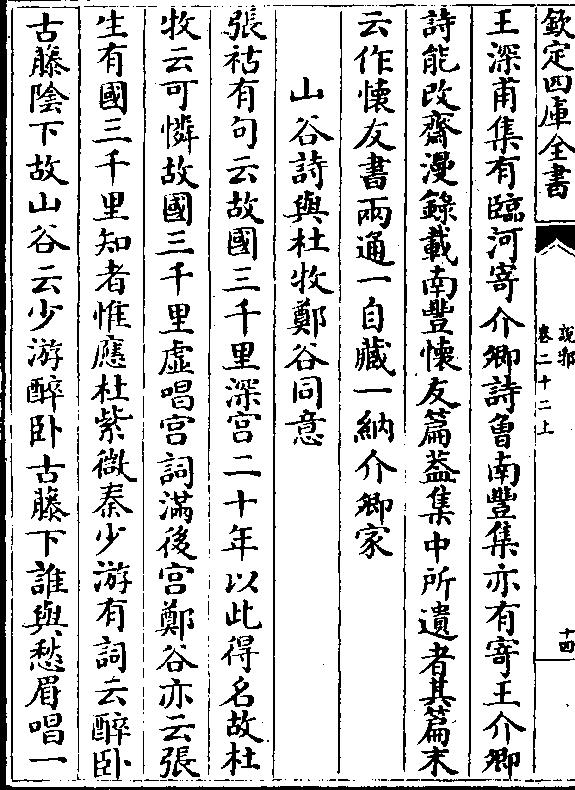 欽定四庫全書
說郛
卷二十二上
十四
王深甫集有臨河寄介卿詩曾南豐集亦有寄王介卿
詩能改齋漫錄載南豐懷友篇葢集中所遺者其篇末
云作懷友書兩通一自藏一納介卿家
山谷詩與杜牧鄭谷同意
張祜有句云故國三千里深宫二十年以此得名故杜
牧云可憐故國三千里虚唱宫詞滿後宫鄭谷亦云張
生有國三千里知者惟應杜紫微秦少游有詞云醉卧
古藤隂下故山谷云少游醉卧古藤下誰與愁眉唱一